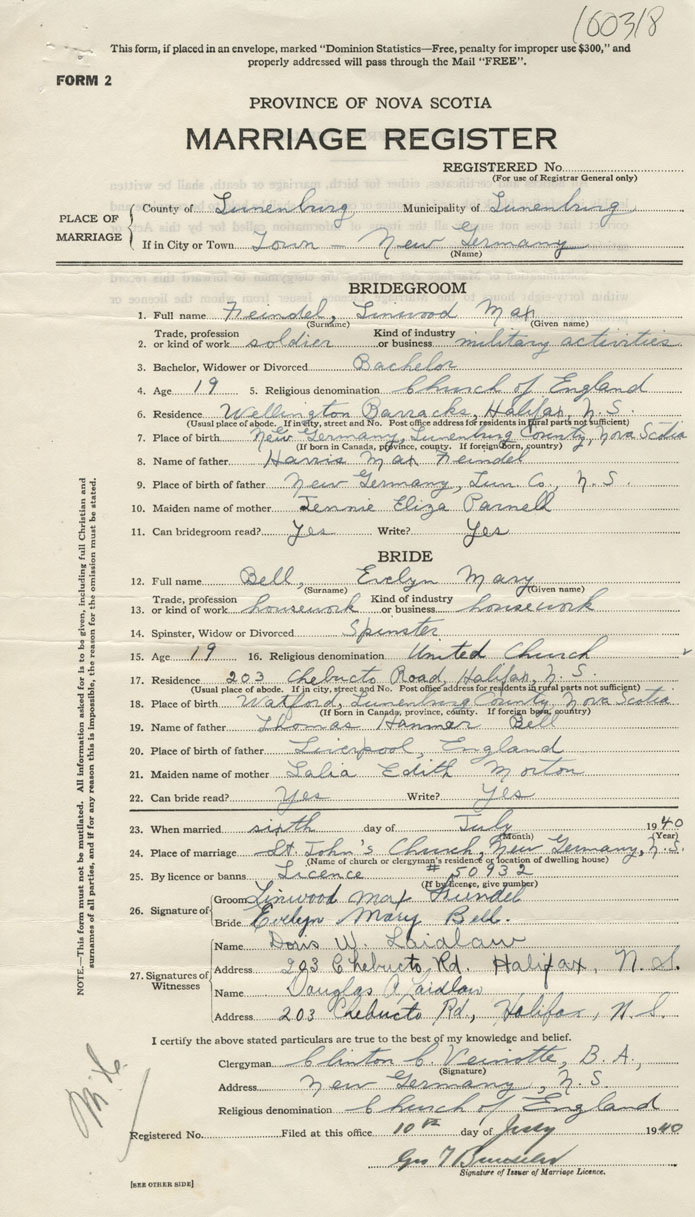 160318
This form, if placed in an envelope, marked "Dominion Statistics—Free, penalty for improper use $300," and
properly addressed will pass through the Mail "FREE".
FORM 2
PROVINCE OF NOVA SCOTIA
MARRIAGE REGISTER
REGISTERED No.
(For use of Registrar General only)
PLACE OF MARRIAGE
County of Lunenburg Municipality of Lunenburg
If in City or Town Town — New Germany
(Name)
BRIDEGROOM
1. Full name Feindel, Linwood Max
(Surname) (Given name)
2. Trade, profession or kind of work soldier Kind of industry or business military activities
3. Bachelor, Widower or Divorced Bachelor
4. Age 19 5. Religious denomination Church of England
6. Residence Wellington Barracks, Halifax, N.S.
(Usual place of abode. If in city, street and No. Post office address for residents in rural parts not sufficient)
7. Place of birth New Germany, Lunenburg County, Nova Scotia
(If born in Canada, province, county. If foreign born, country)
8. Name of father Harris Max Feindel
9. Place of birth of father New Germany, Lun. Co., N.S.
10. Maiden name of mother Jennie Eliza Parnell
11. Can bridegroom read? Yes Write? Yes
BRIDE
12. Full name Bell, Evelyn Mary
(Surname) (Given name)
13. Trade, profession or kind of work housework Kind of industry or business housework
14. Spinster, Widow or Divorced Spinster
15. Age 19 16. Religious denomination United Church
17. Residence 203 Chebucto Road, Halifax, N.S.
(Usual place of abode. If in city, street and No. Post office address for residents in rural parts not sufficient)
18. Place of birth Watford, Lunenburg County, Nova Scotia
(If born in Canada, province, county. If foreign born, country)
19. Name of father Thomas Hanmer Bell
20. Place of birth of father Liverpool, England
21. Maiden name of mother Lalia Edith Morton
22. Can bride read? Yes Write? Yes
23. When married sixth day of July 1940
(Month) (Year)
24. Place of marriage St. John's Church, New Germany, N.S.
(Name of church or clergyman's residence or location of dwelling house)
25. By licence or banns Licence # 50932
(If by licence, give number)
26. Signature of
Groom Linwood Max Feindel
Bride Evelyn Mary Bell.
27. Signatures of Witnesses
Name Doris W. Laidlaw
Address 203 Chebucto Rd. Halifax, N.S.
Name Douglas A Laidlaw
Address 203 Chebucto Rd., Halifax, N.S.
I certify the above stated particulars are true to the best of my knowledge and belief.
Clergyman Clinton C. Veinotte, B.A.,
(Signature)
Address New Germany, N.S.
Religious denomination Church of England
Registered No. Filed at this office 10th day of July 1940
Geo T
Signature of Issuer of Marriage Licence.
[SEE OTHER SIDE]
NOTE.—This form must not be mutilated. All information asked for is to be given, including full Christian and
surnames of all parties, and if for any reason this is impossible, the reason for the omission must be stated.